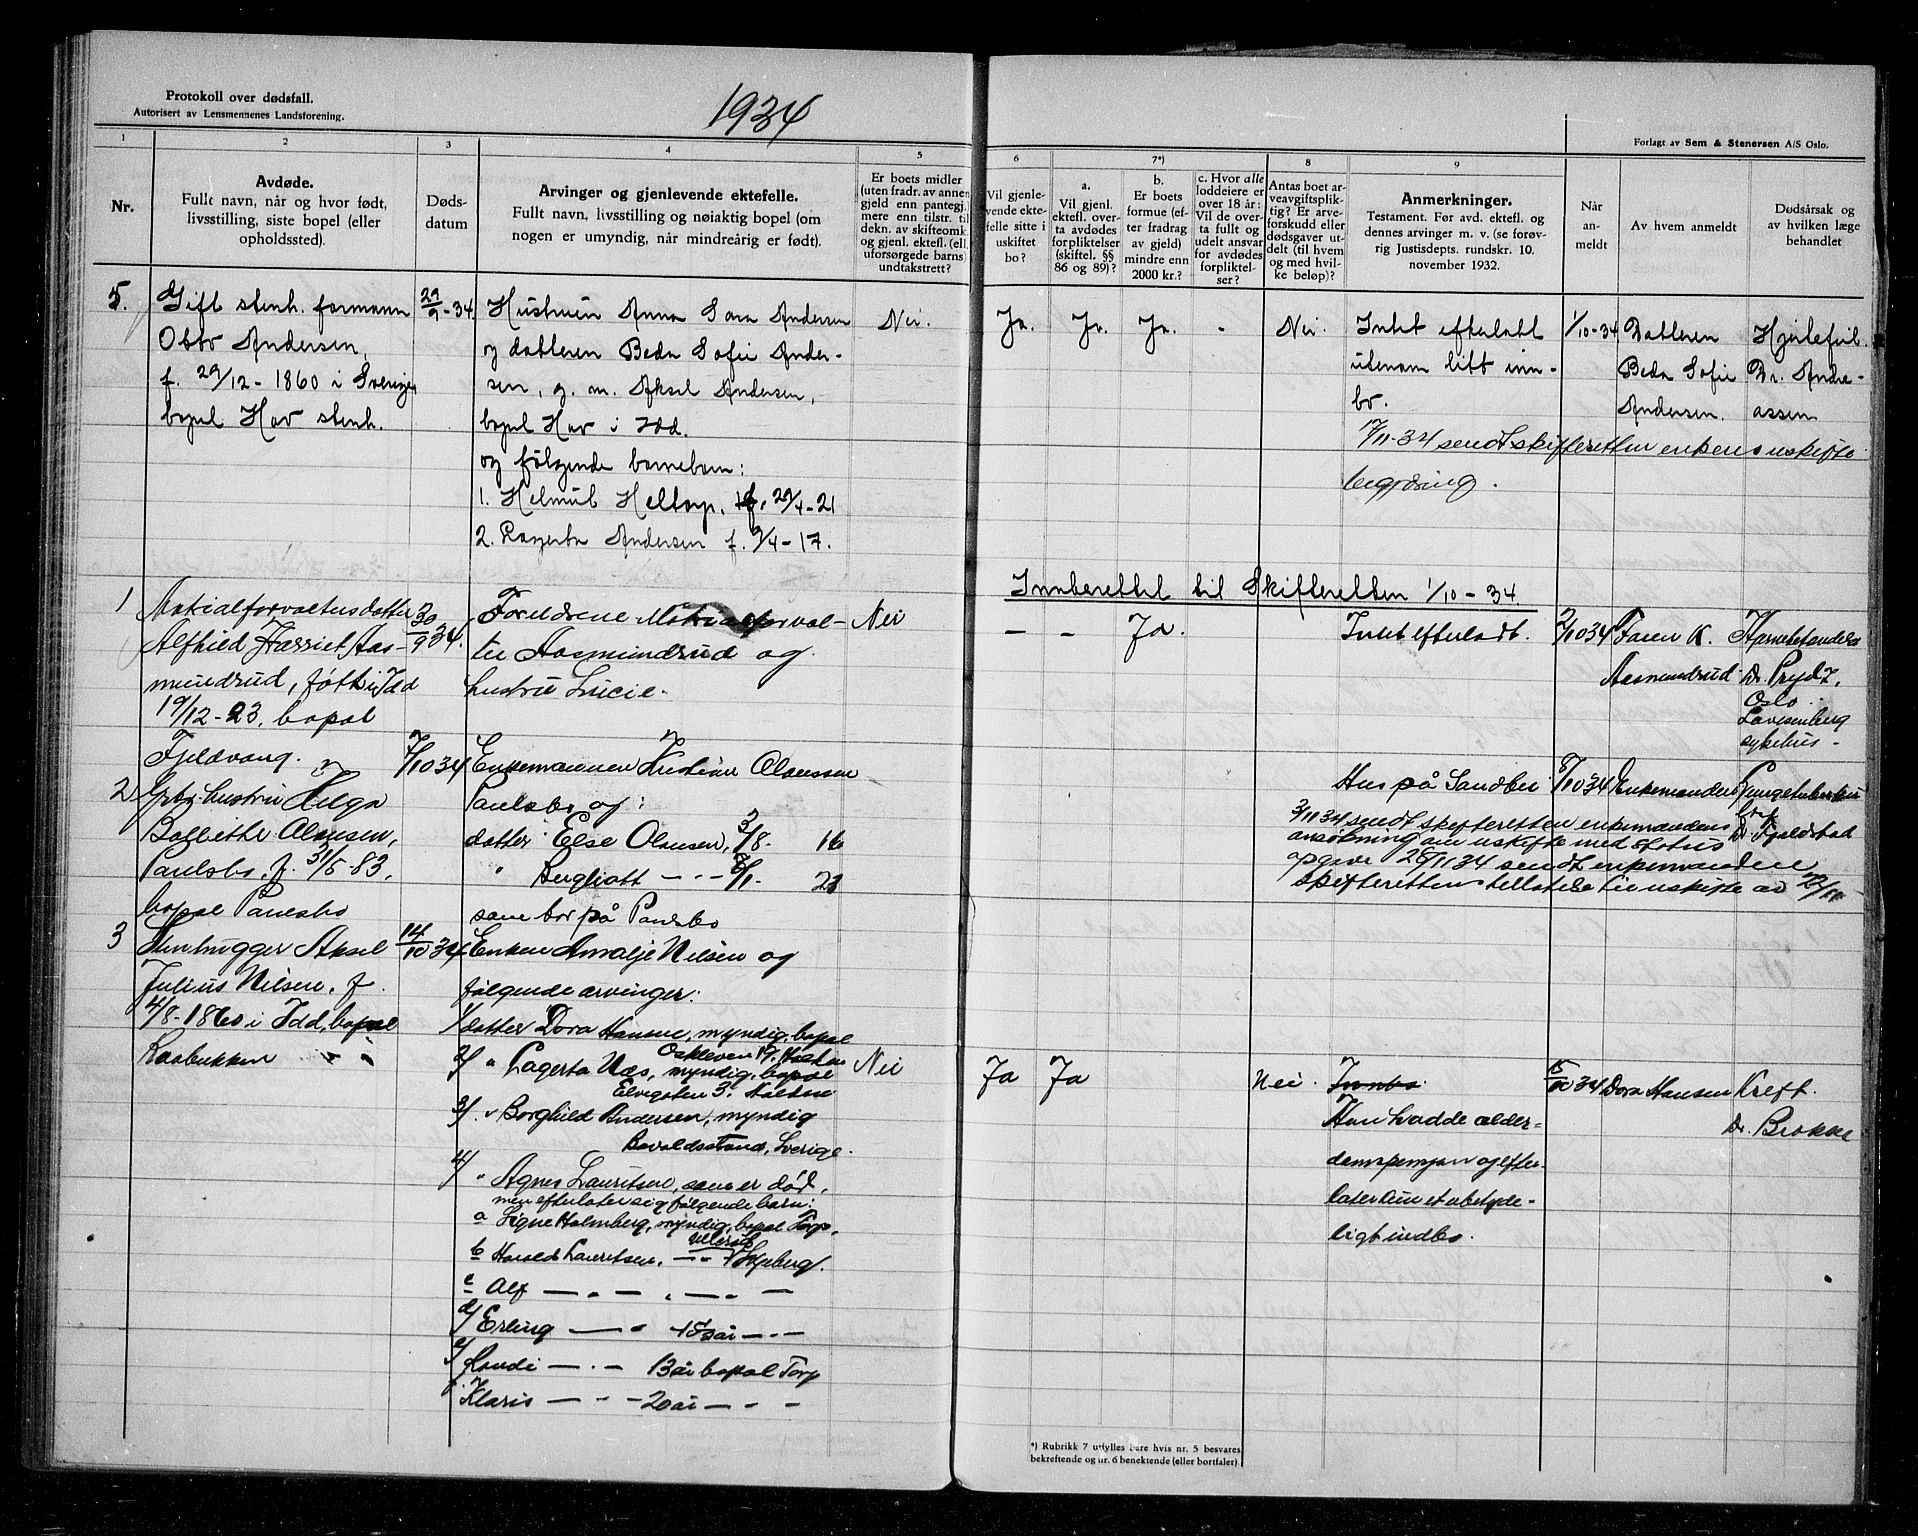 Protokoll over dødsfall.
Autorisert av Lensmennenes Landsforening.
1934
Forlagt av Sem & Stenersen A/S Oslo.
1
2
3
4
5
6
7*)
8
9
Nr.
Avdøde.
Fullt navn, når og hvor født,
livsstilling, siste bopel (eller
opholdssted).
Døds-
datum
Arvinger og gjenlevende ektefelle.
Fullt navn, livsstilling og nøiaktig bopel (om
nogen er umyndig, når mindreårig er født).
Er boets midler
(uten fradr. av annen
gjeld enn pantegj.
mere enn tilstr. til
dekn. av skifteomk.
og gjenl. ektef. (ell.
uforsørgede barns)
undtakstrett?
Vil gjenle-
vende ekte-
felle sitte i
uskiftet
bo?
a.
Vil gjenl.
ektefl. over-
ta avdødes
forpliktelser
(skiftel. §§
86 og 89)?
b.
Er boets
formue (ef-
ter fradrag
av gjeld)
mindre enn
2000 kr.?
c. Hvor alle
loddeiere er
over 18 år:
Vil de over-
ta fullt og
udelt ansvar
for avdødes
forpliktel-
ser?
Antas boet ar-
veavgiftsplik-
tig? Er arve-
forskudd eller
dødsgaver ut-
delt (til hvem
og med hvil-
ke beløp)?
Anmerkninger.
Testament. Før avd. ektefl. og
dennes arvinger m. v. (se forøv-
rig Justisdepts. rundskr. 10.
november 1932.
Når
an-
meldt
Av hvem anmeldt
Dødsårsak og
av hvilken læge
behandlet
5.
Gift stenh. formann
Otto Andersen,
f. 29/12 - 1860 i Sverige,
bopel Hov stenh.
29/9-34.
Hustruen Anna Sara Andersen
og datteren Beda Sofie Ander-
sen, g. m. Aksel Andersen,
bopel Hov i Idd.
og følgende barnebarn:
1. Helmut Heltorp, f. 29/4-21
2. Lagerta Andersen f. 9/4-17.
Nei.
Ja.
Ja.
Ja.
-
Nei.
Intet efterlatt
utenom litt inn-
bo.
17/11-34 sendt skifteretten enkens uskifte
begjæring.
1/10-34
Datteren
Beda Sofie
Andersen.
Hjertefeil.
Dr. Andre-
assen
Innberettet til Skifteretten 1/10-34.
1
Matrialforvalters datter
Alfhild Harriet Aas-
mundrud, født i Idd
19/12-23, bopal
Fjeldvang.
30/9 34.
Foreldrene Matrialforval-
ter Aasmundrud og
hustru Lucie.
Nei
-
-
Ja.
Intet efterladt.
2/10 34
Faren K.
Aasmundrud
Dr. Prydz,
Oslo.
Lovisenberg
sykehus-
2
Gbr. hustru Helga
Olausen,
Paulsbo, f. 31/5-83,
bopal Paulsbo
7/10 34
Enkemannen Kristian Olaussen
Paulsbo og:
datter Else Olausen, 3/8. 16
" Bergliott - - - 6/1. 21
som bor på Paulsbo
Hus på Sandbu
3/11 34 sendt skifteretten enkemandens
ansøkning om uskifte med status
opgave 26/11 34 sendt enkemanden
skifterettens tillatelse til uskifte av
8/10 34
Enkemanden
Lungetuberku
lose
Dr. Fjeldstad
3
Stenhugger Aksel
Julius Nilsen, f.
4/8-1860 i Idd, bopal
14/10 34
Enken Amalje Nilsen og
følgende arvinger:
1/ datter Dora Hansen, myndig, bopal
Oskleven 19. Halden
2/ " Lagerta Næs, myndig, bopal
Elvegaten 3. Halden
3/ " Borghild Andersen, myndig
Sverige.
4/ " Agnes Lauritsen, som er død,
men efterlater sig følgende barn:
a Signe Holmberg, myndig, bopal Torp,
b Harald Lauritsen, - - Ullerøy Skjeberg.
c Alf - " - " - " -
d/ Erling - " 18 år - " -
e/ Randi - " - 13 år bopal Torp
f. Klaris - " - 20 år - " -
Nei
Ja
Ja
Nei.
Innbo
Han hadde alder-
domspensjon og efter-
later kun et ubetyde-
ligt indbo.
15/10 34
Dora Hansen
Kreft.
Dr. Brokke
*) Rubrikk 7 utfylles bare hvis nr. 5 besvares
bekreftende og nr. 6 benektende (eller bortfaller).